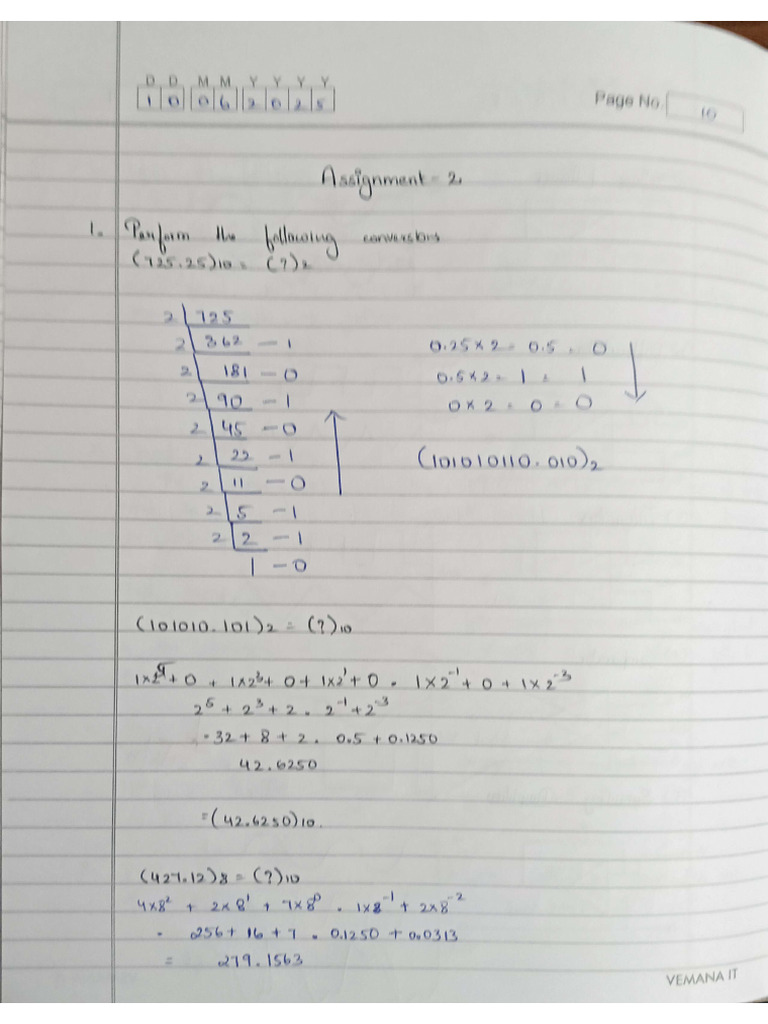 D D M M Y Y Y Y
1 0 0 6 2 0 2 5
Page No 10
Assignment - 2
1. Perform the following conversions
(725.25)10 = (?)2
2 725
2 362 - 1
2 181 - 0
2 90 - 1
2 45 - 0
2 22 - 1
2 11 - 0
2 5 - 1
2 2 - 1
1 - 0
0.25 × 2 = 0.5 = 0
0.5 × 2 = 1 = 1
0 × 2 = 0 = 0
(101010110.010)2
(101010.101)2 = (?)10
1×2⁵ + 0 + 1×2³ + 0 + 1×2¹ + 0 . 1×2⁻¹ + 0 + 1×2⁻³
2⁵ + 2³ + 2 . 2⁻¹ + 2⁻³
= 32 + 8 + 2 . 0.5 + 0.1250
42.6250
= (42.6250)10.
(427.12)8 = (?)10
4×8² + 2×8¹ + 7×8⁰ . 1×8⁻¹ + 2×8⁻²
= 256 + 16 + 7 . 0.1250 + 0.0313
= 279.1563
VEMANA IT